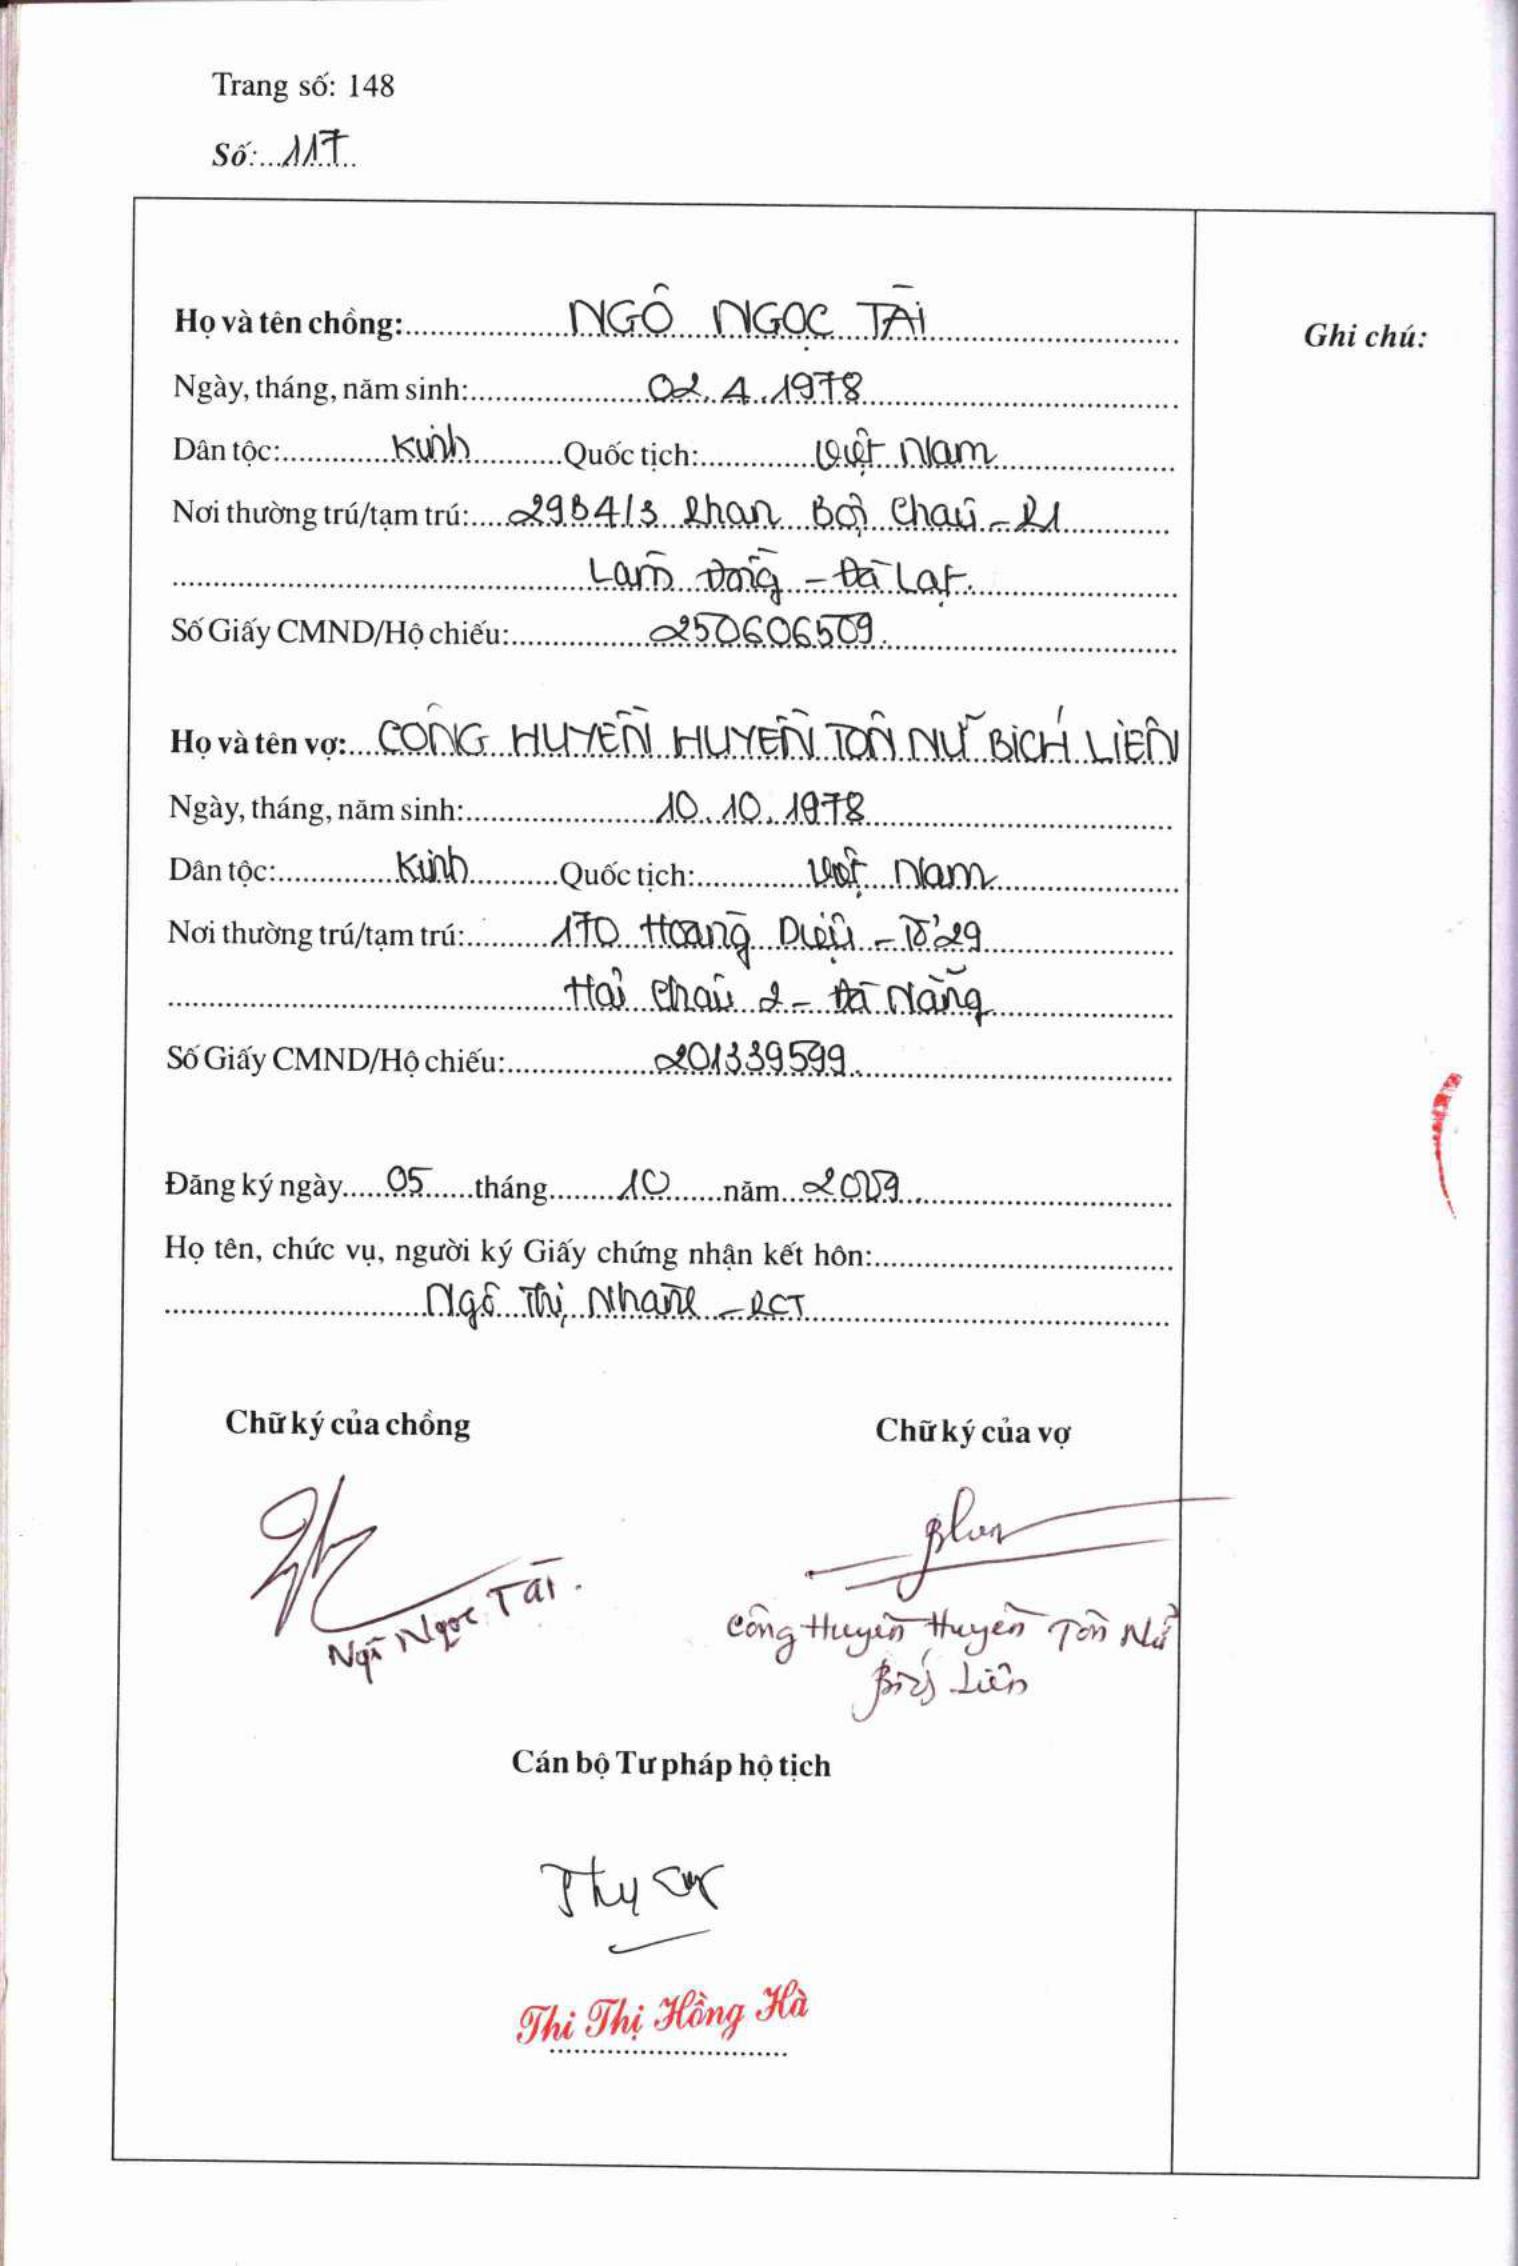 Trang số: 148
Số: 117
Họ và tên chồng: NGÔ NGỌC TÀI
Ghi chú:
Ngày, tháng, năm sinh: 02.4.1978
Dân tộc: Kinh Quốc tịch: Việt Nam
Nơi thường trú/tạm trú: 29B4/3 Phan Bội Châu - P1
Lâm Đồng - Đà Lạt.
Số Giấy CMND/Hộ chiếu: 250606509.
Họ và tên vợ: CÔNG HUYỀN HUYỀN TÔN NỮ BÍCH LIÊN
Ngày, tháng, năm sinh: 10.10.1978
Dân tộc: Kinh Quốc tịch: Việt Nam
Nơi thường trú/tạm trú: 170 Hoàng Diệu - Tổ 29
Hải Châu 2 - Đà Nẵng
Số Giấy CMND/Hộ chiếu: 201339599.
Đăng ký ngày 05 tháng 10 năm 2009.
Họ tên, chức vụ, người ký Giấy chứng nhận kết hôn:
Ngô Thị - PCT
Chữ ký của chồng
Chữ ký của vợ
Ngô Ngọc Tài.
Công Huyền Huyền Tôn Nữ
Bích Liên
Cán bộ Tư pháp hộ tịch
Thi Thị Hồng Hà